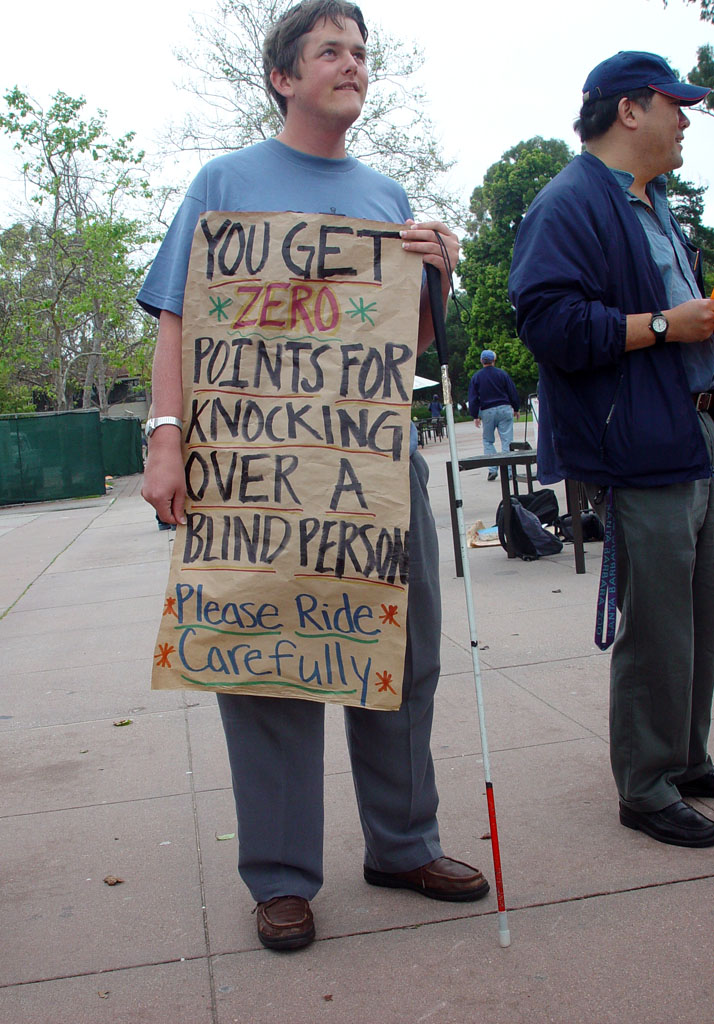 YOU GET
ZERO
POINTS FOR
KNOCKING
OVER A
BLIND PERSON
Please Ride
Carefully
SANTA BARBARA ZOO